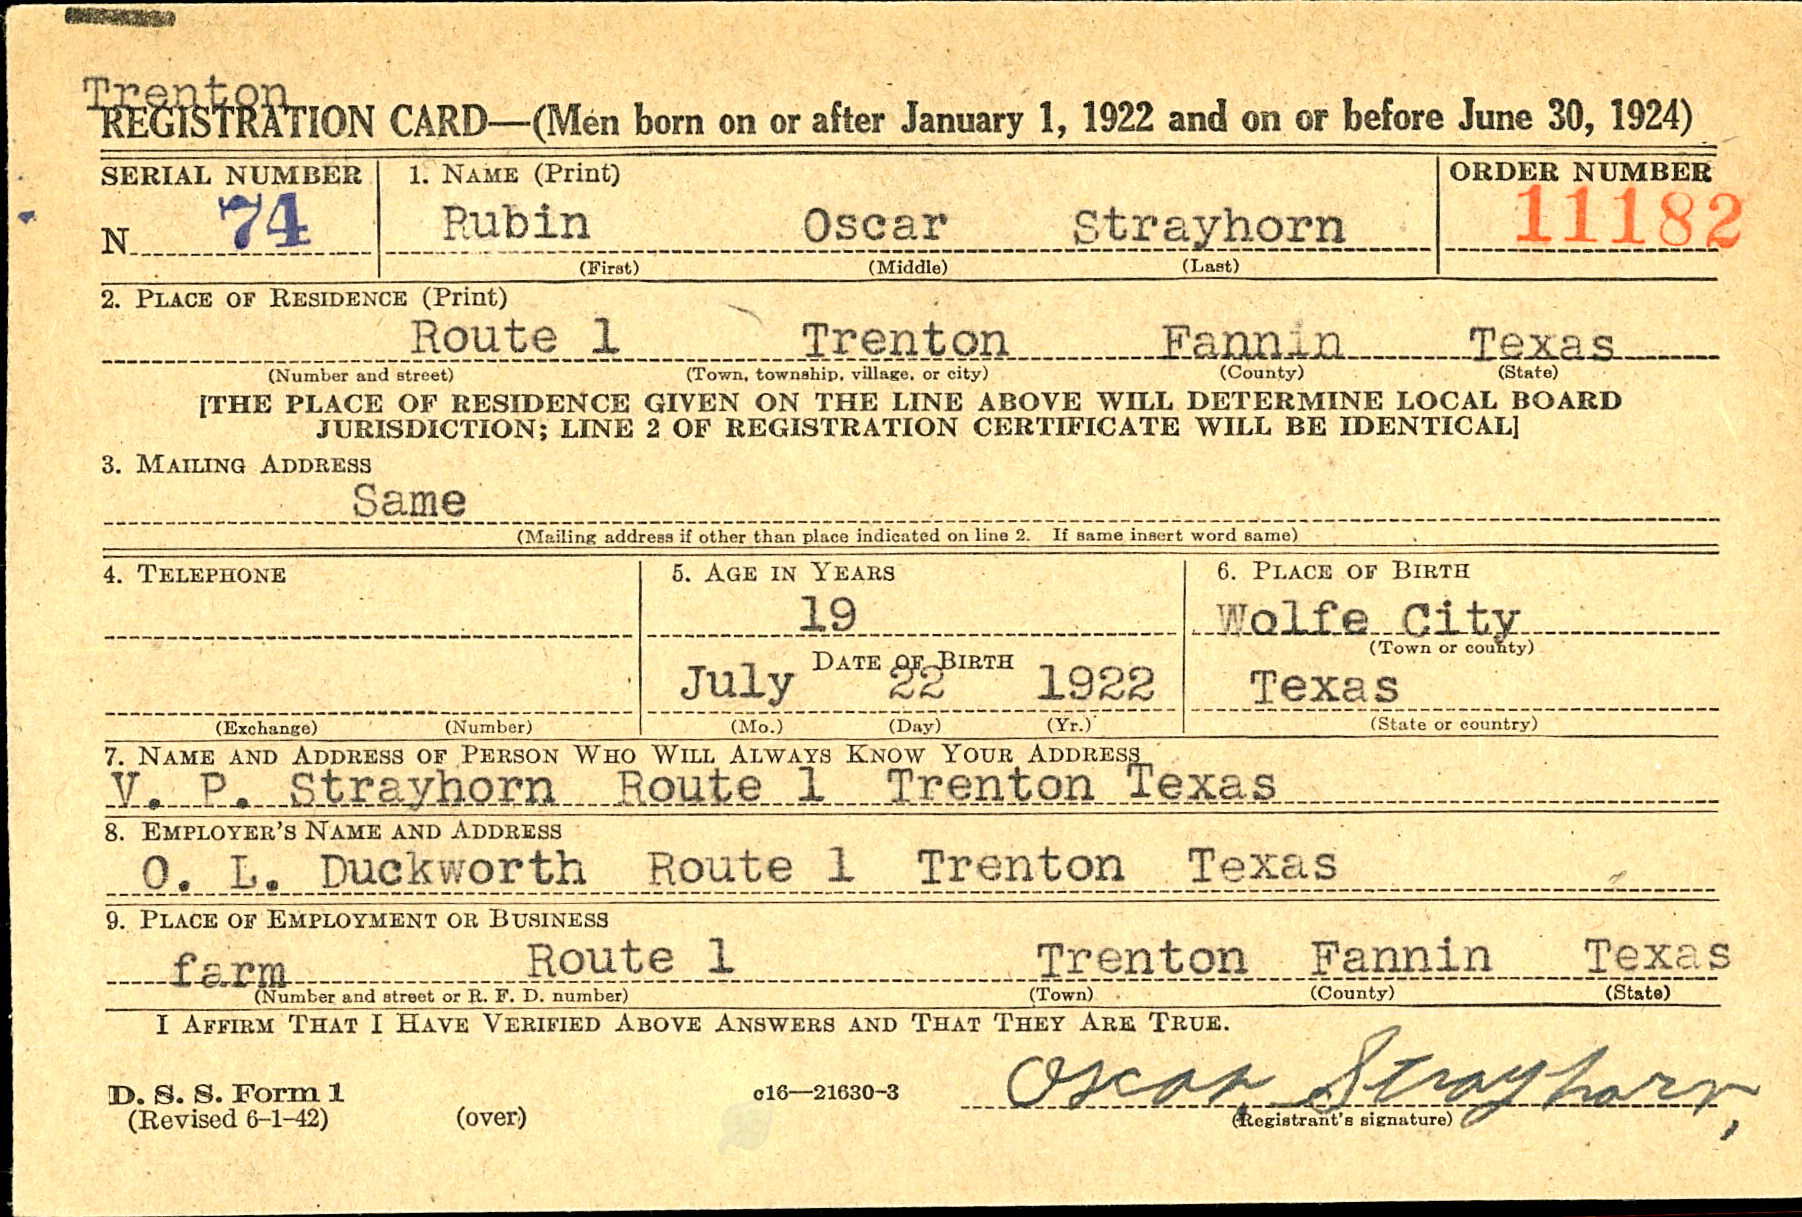 Trenton
REGISTRATION CARD—(Men born on or after January 1, 1922 and on or before June 30, 1924)
SERIAL NUMBER 1. NAME (Print) ORDER NUMBER
N 74 Rubin Oscar Strayhorn 11182
(First) (Middle) (Last)
2. PLACE OF RESIDENCE (Print)
Route 1 Trenton Fannin Texas
(Number and street) (Town, township, village, or city) (County) (State)
[THE PLACE OF RESIDENCE GIVEN ON THE LINE ABOVE WILL DETERMINE LOCAL BOARD
JURISDICTION; LINE 2 OF REGISTRATION CERTIFICATE WILL BE IDENTICAL]
3. MAILING ADDRESS
Same
(Mailing address if other than place indicated on line 2. If same insert word same)
4. TELEPHONE 5. AGE IN YEARS 6. PLACE OF BIRTH
19 Wolfe City
(Town or county)
DATE OF BIRTH
July 22 1922 Texas
(Exchange) (Number) (Mo.) (Day) (Yr.) (State or country)
7. NAME AND ADDRESS OF PERSON WHO WILL ALWAYS KNOW YOUR ADDRESS
V. P. Strayhorn Route 1 Trenton Texas
8. EMPLOYER'S NAME AND ADDRESS
O. L. Duckworth Route 1 Trenton Texas
9. PLACE OF EMPLOYMENT OR BUSINESS
farm Route 1 Trenton Fannin Texas
(Number and street or R. F. D. number) (Town) (County) (State)
I AFFIRM THAT I HAVE VERIFIED ABOVE ANSWERS AND THAT THEY ARE TRUE.
D. S. S. Form 1 c16—21630-3 Oscar Strayhorn
(Revised 6-1-42) (over) (Registrant's signature)